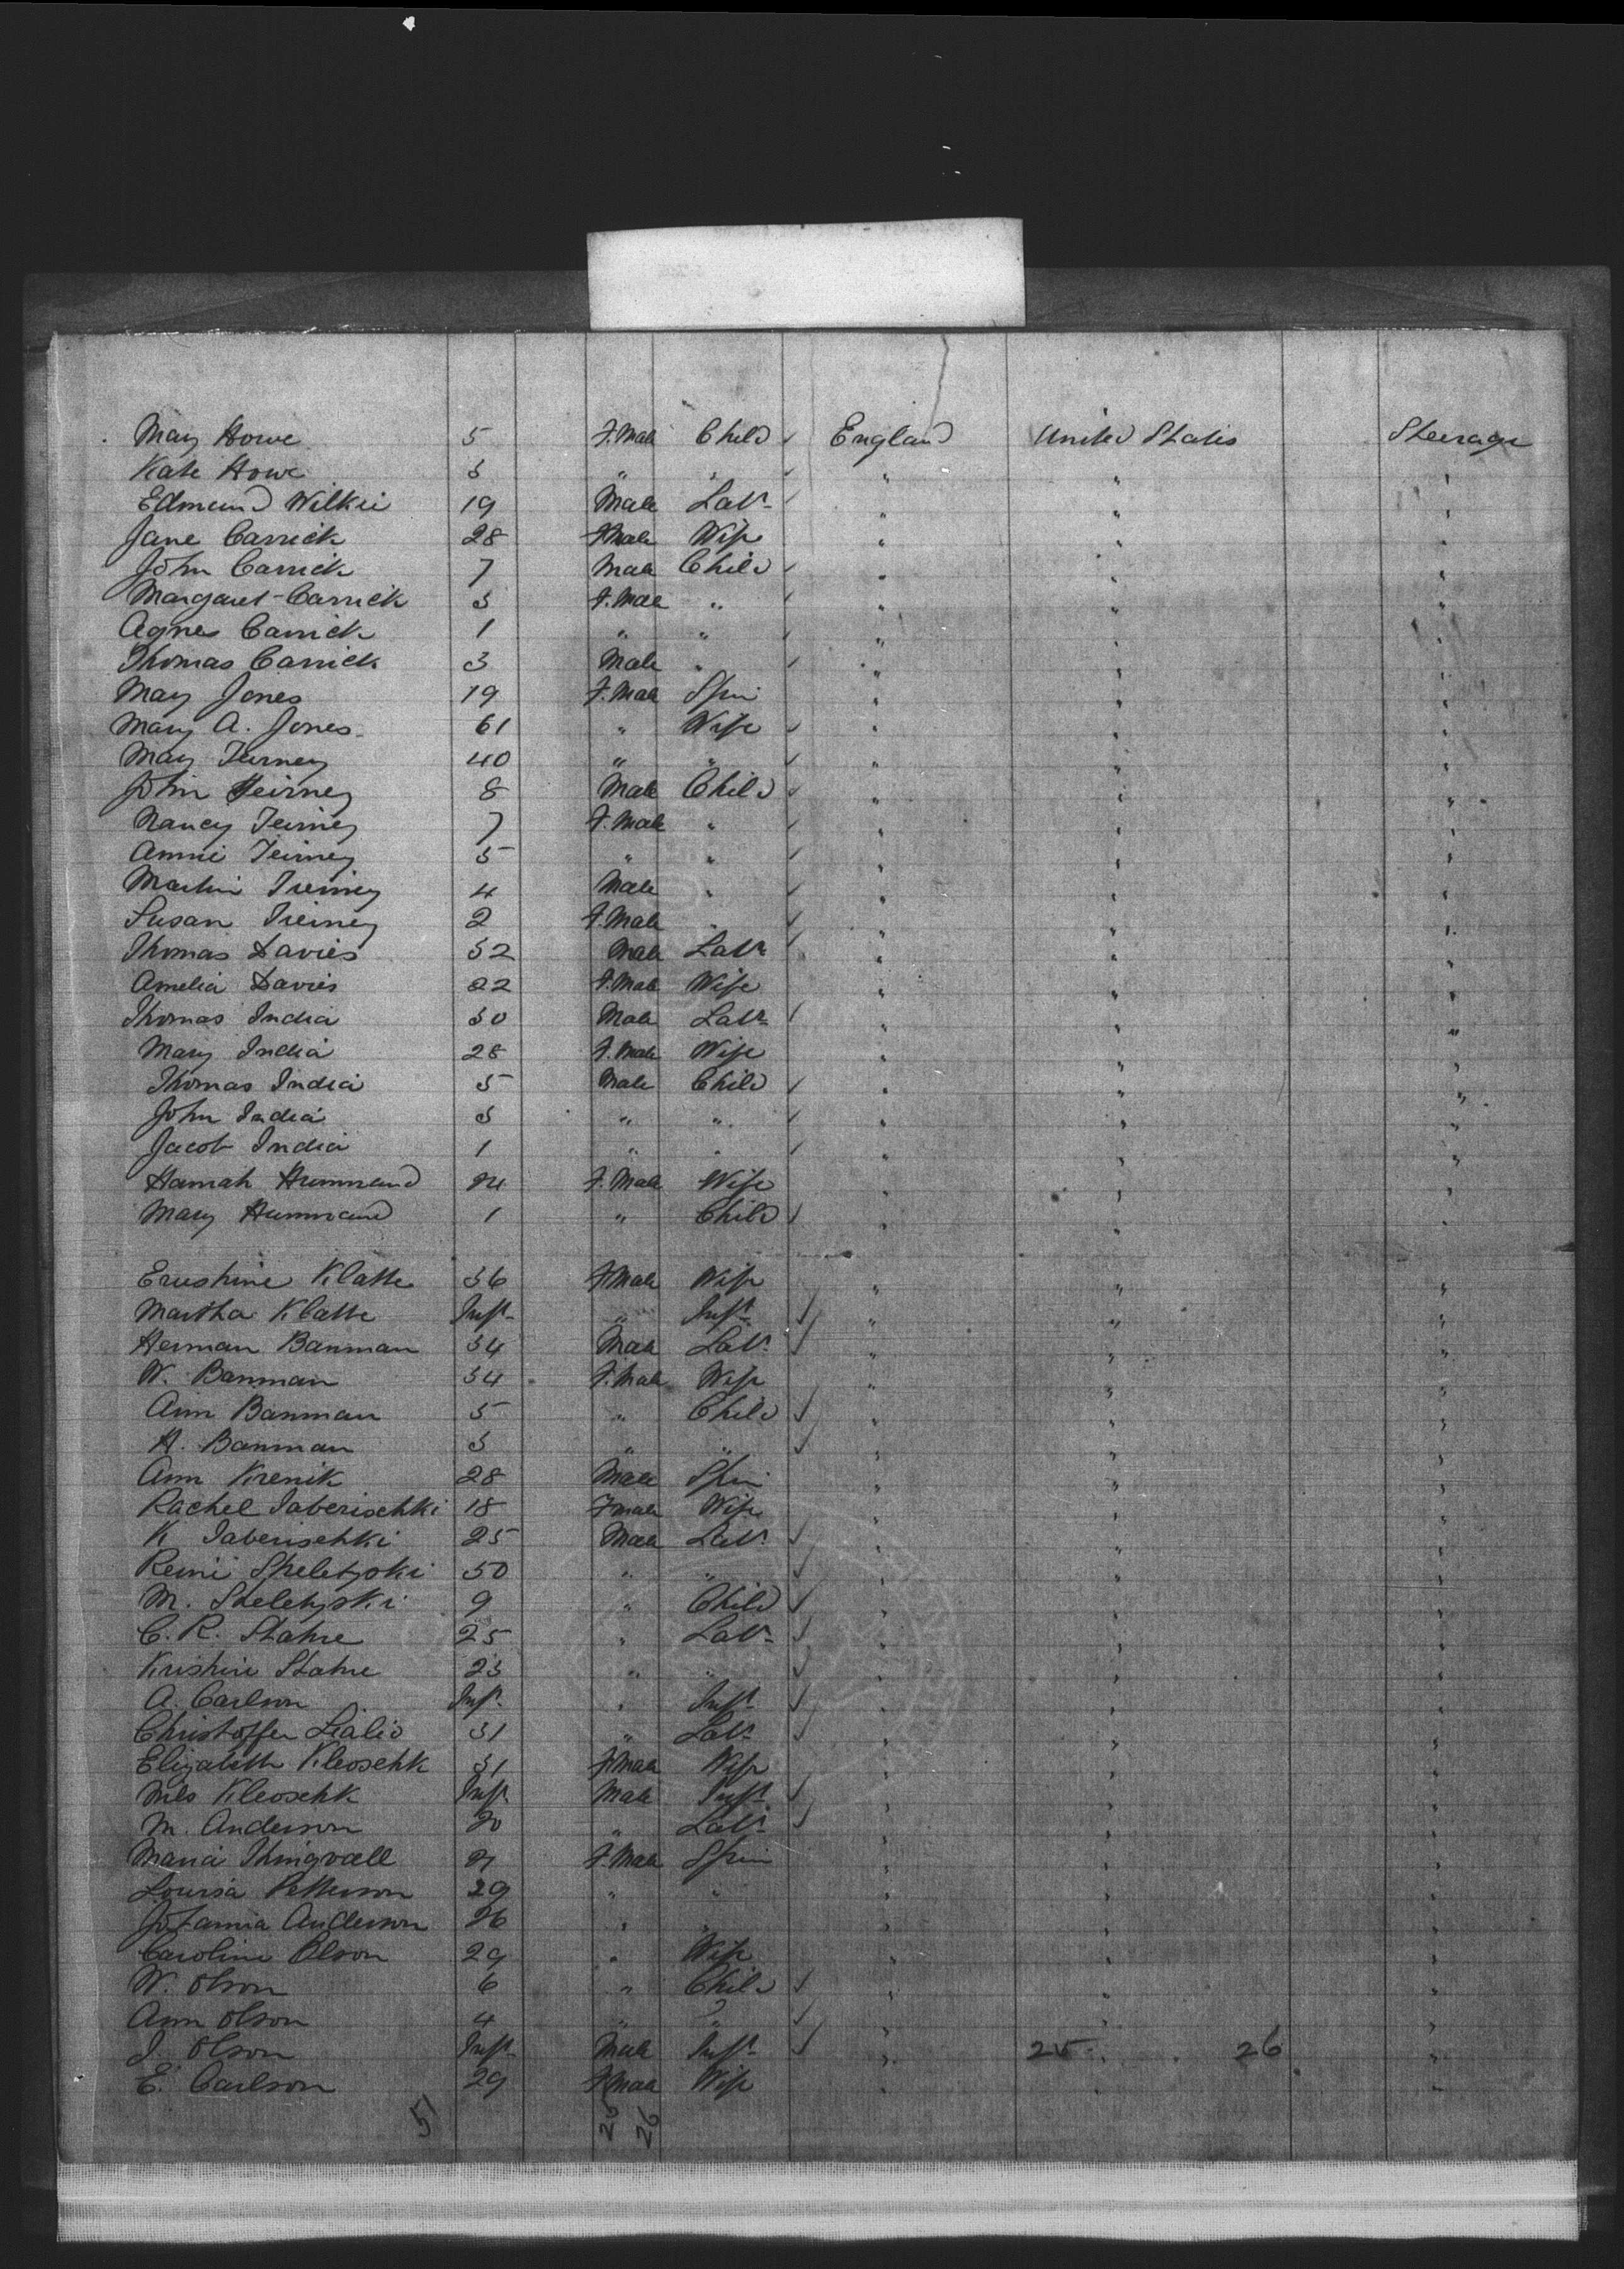 Mary Howe 5 F.Male Child ✓ England United States Steerage
Kate Howe 3 " " ✓ " " "
Edmund Wilkie 19 Male Labr ✓ " " "
Jane Carrick 28 FMale Wife " " "
John Carrick 7 Male Child ✓ " " "
Margaret Carrick 3 F.Male " ✓ " " "
Agnes Carrick 1 " " ✓ " " "
Thomas Carrick 3 Male " ✓ " " "
Mary Jones 19 F.Male Spin " " "
Mary A. Jones 61 " Wife ✓ " " "
Mary Tierney 40 " " ✓ " " "
John Teirney 8 Male Child ✓ " " "
Nancy Teirney 7 F.Male " ✓ " " "
Annie Teirney 5 " " ✓ " " "
Martin Tierney 4 Male " ✓ " " "
Susan Tierney 2 F.Male " ✓ " " "
Thomas Davies 32 Male Labr ✓ " " "
Amelia Davies 22 F.Male Wife " " "
Thomas India 30 Male Labr ✓ " " "
Mary India 28 F.Male Wife " " "
Thomas India 5 Male Child ✓ " " "
John India 3 " " ✓ " " "
Jacob India 1 " " ✓ " " "
Hannah 24 F.Male Wife " " "
Mary 1 " Child ✓ " " "
Klatte 36 FMale Wife " " "
Martha Klatte Inft " Inft ✓ " " "
Herman Banman 34 Male Labr ✓ " " "
W. Banman 34 F.Male Wife " " "
Ann Banman 5 " Child ✓ " " "
H. Banman 3 " " ✓ " " "
Ann Krenik 28 Male Spin " " "
Rachel Iaberischki 18 Fmale Wife " " "
K Iaberischki 25 Male Labr ✓ " " "
50 " " ✓ " " "
M. 9 " Child ✓ " " "
C. R. Stahre 25 " Labr ✓ " " "
Kristine Stahre 23 " " ✓ " " "
A. Carlson Inft " Inft ✓ " " "
Christoffer 31 " Labr ✓ " " "
Elizabeth Kleoschk 31 FMale Wife " " "
Nils Kleoschk Inft Male Inft ✓ " " "
M. Anderson 20 " Labr ✓ " " "
Maria Thingvall 21 F.Male Spin " " "
Lovisa Petterson 29 " " " " "
Johanna Anderson 26 " " " " "
Caroline Olson 29 " Wife " " "
W. Olson 6 " Child ✓ " " "
Ann Olson 4 " " ✓ " " "
J. Olson Inft Male Inft ✓ " 25 " 26 "
E. Carlson 29 FMale Wife " " "
51 25 26